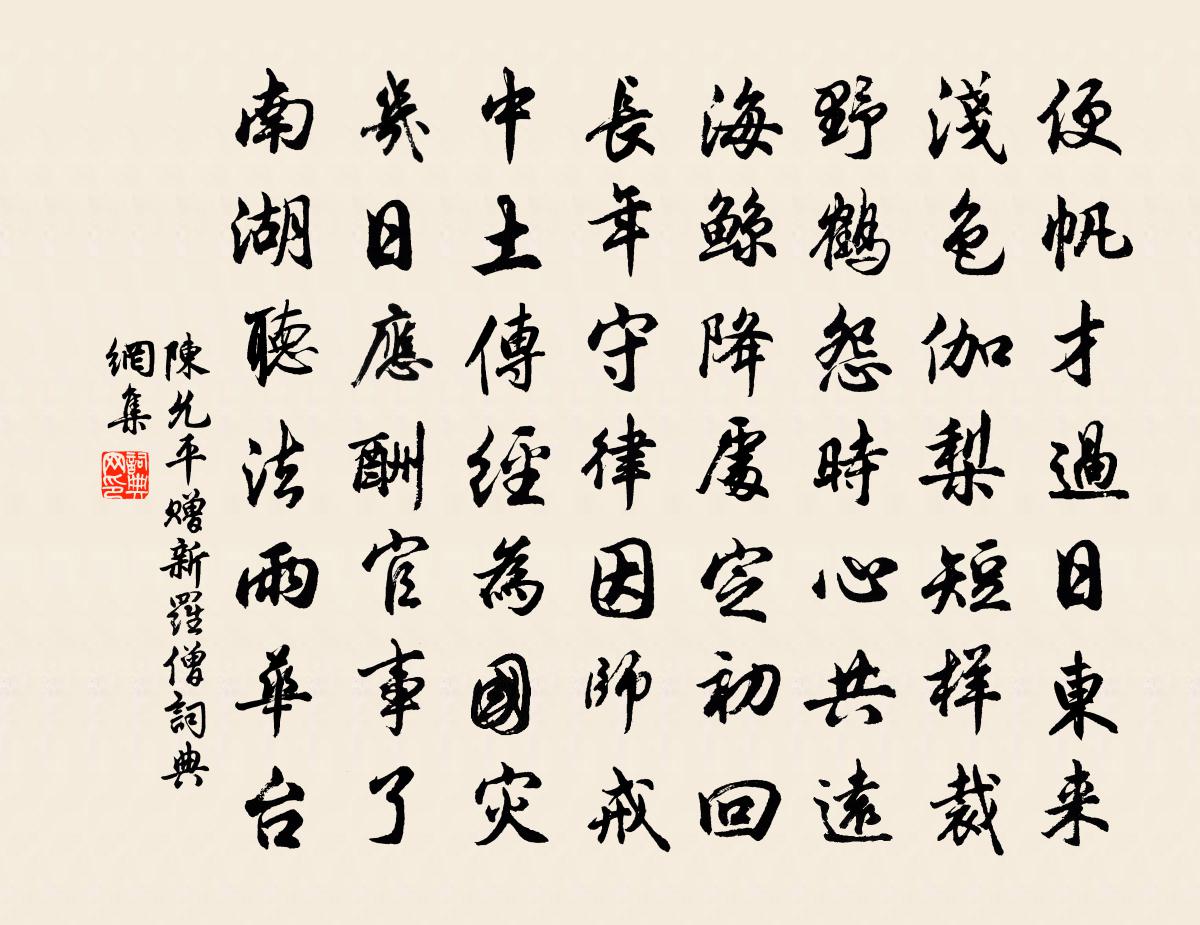 便帆才過日東来
淺色伽梨短样裁
野鶴怨時心共遠
海鯨降處定初回
長年守律因師戒
中土傳經為國灾
幾日應酬官事了
南湖聽法雨華台
陳允平赠新羅僧詞典
網集
詞典网印